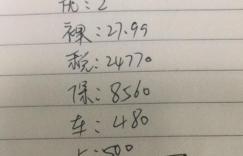 优：2
裸：27.99
税：24770
保：8560
车：480
：500